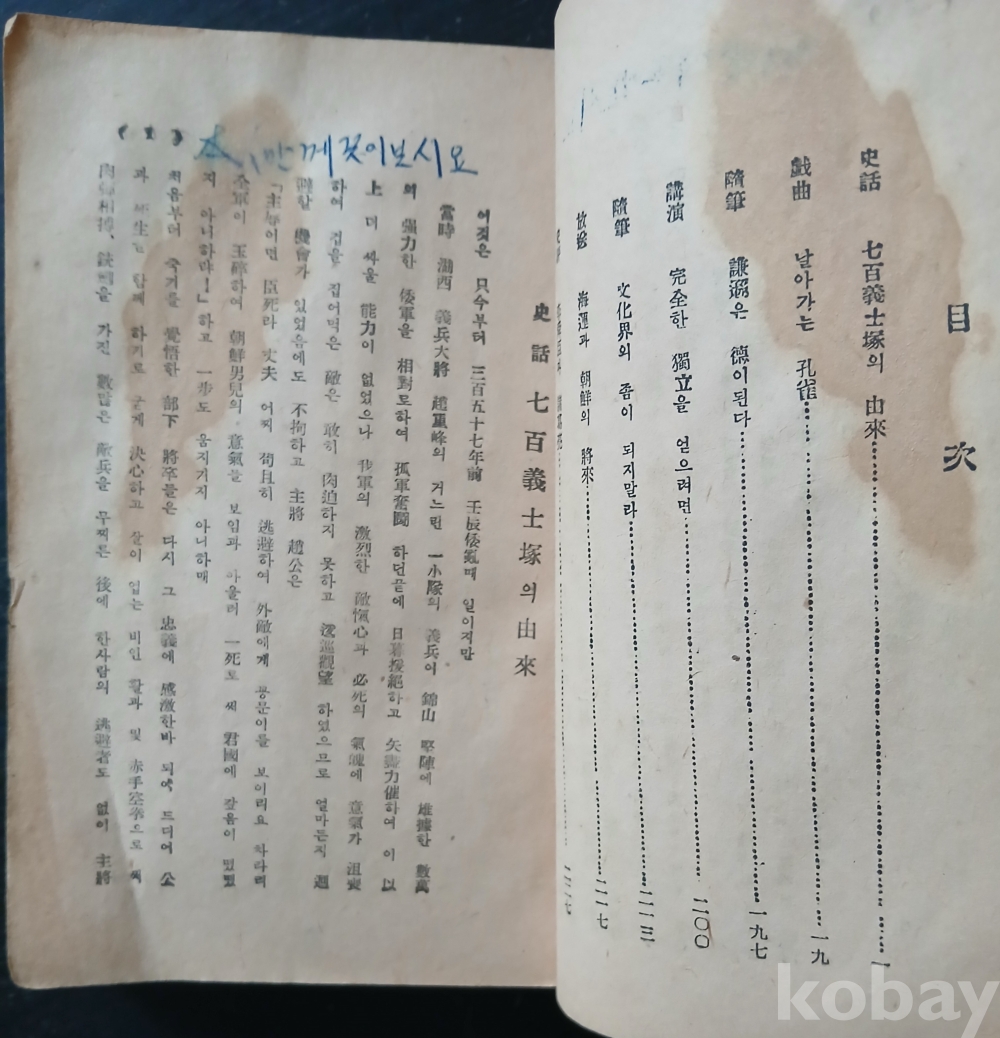 目次
史話 七百義士塚의 由來 一
戱曲 날아가는 孔雀 一九
隨筆 謙遜은 德이된다 一九七
講演 完全한 獨立을 얻으려면 二〇〇
隨筆 文化界의 좀이 되지말라 二一三
放送 海運과 朝鮮의 將來 二一七
二二七
(1)
께 꼿이보시요
史話 七百義士塚의 由來
이것은 只今부터 三百五十七年前 壬辰倭亂때 일이지만
當時 湖西 義兵大將 趙重峰의 거느린 一小隊의 義兵이 錦山 堅陣에 雄據한 數萬
의 强力한 倭軍을 相對로하여 孤軍奮鬪 하던끝에 日暮援絶하고 矢盡力催하여 이 以
上 더 싸울 能力이 없었으나 我軍의 激烈한 敵愾心과 必死의 氣魄에 意氣가 沮喪
하여 겁을 집어먹은 敵은 敢히 肉迫하지 못하고 逡巡觀望 하였으므로 얼마든지 退
機會가 있었음에도 不拘하고 主將 趙公은
「主辱이면 臣死라 丈夫 어찌 苟且히 逃避하여 外敵에게 꽁문이를 보이리요 차라리
全軍이 玉碎하여 朝鮮男兒의 意氣를 보임과 아울러 一死로 써 君國에 갚음이 떳떳
지 아니하랴!」하고 一步도 움지기지 아니하매
처음부터 죽기를 覺悟한 部下 將卒들은 다시 그 忠義에 感激한바 되어 드디어 公
과 死生을 함께 하기로 굳게 決心하고 살이 없는 비인 활과 및 赤手空拳으로 써
肉彈相搏, 鐵 을 가진 數많은 敵兵을 무찌른 後에 한사람의 逃避者도 없이 主將
kobay